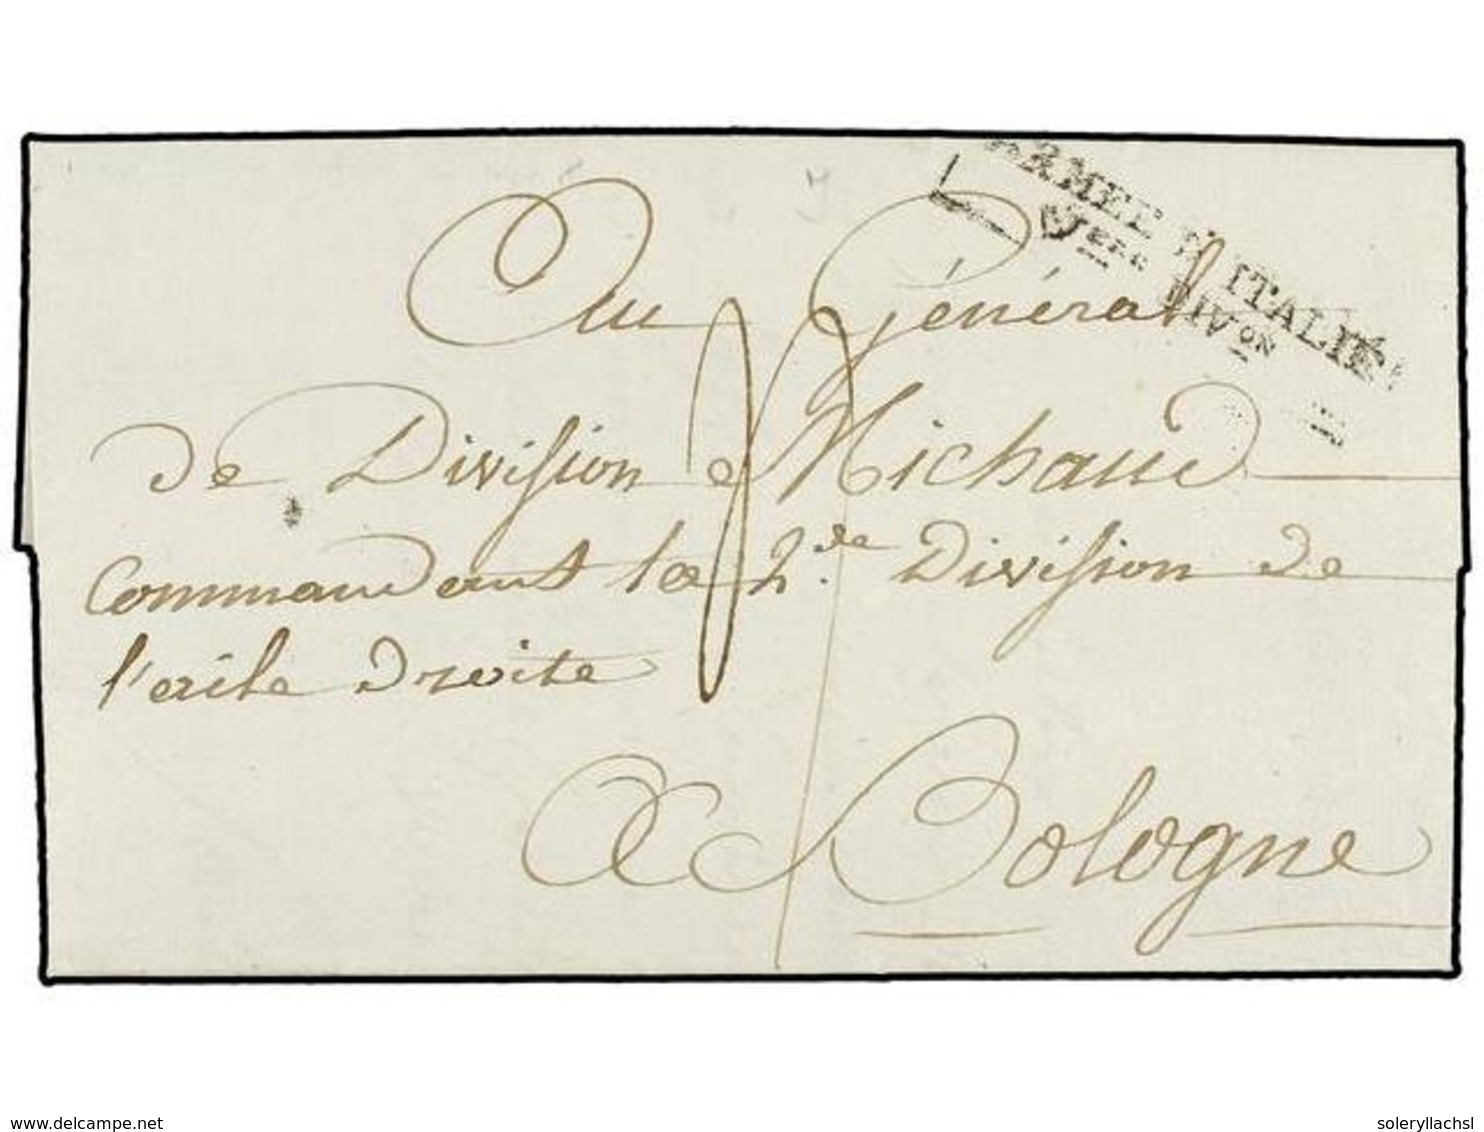 ARMEE D'ITALIE
1ere DIVon
Au Général
de Division Michaud
commandant la 2.de Division de
l'aile droite
A Bologne
delcampe.net
soleryllachsl